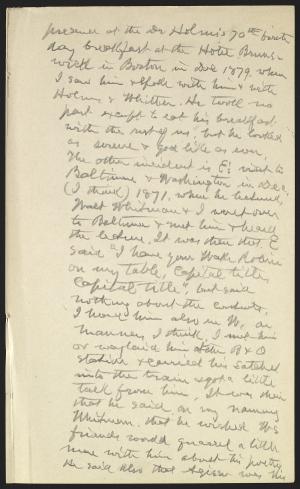 present at the Dr Holmes 70th birth
day breakfast at the Hotel Bruns-
wick in Boston in Dec 1879, when
I saw him & spoke with him & with
Holmes & Whittier. He took no
part except to eat his breakfast
with the rest of us, but he looked
as serene & god like as ever.
The other incident is E's visit to
Baltimore & Washington in Dec
(I think) 1871, when he lectured,
Walt Whitman & I went over
to Baltimore & met him & heard
the lecture. It was then that E
said "I have your Wake Robin
on my table, Capital title,
Capital title", but said
nothing about the contents.
I heard him also in W. on
manners, I think, I met him
or waylaid him at the B & O
Station & carried his satchel
into the train & got a little
talk from him, It was then
that he said on my naming
Whitman, that he wished W's
friends would quarrel a little
more with him about his poetry
He said also that Agassiz was